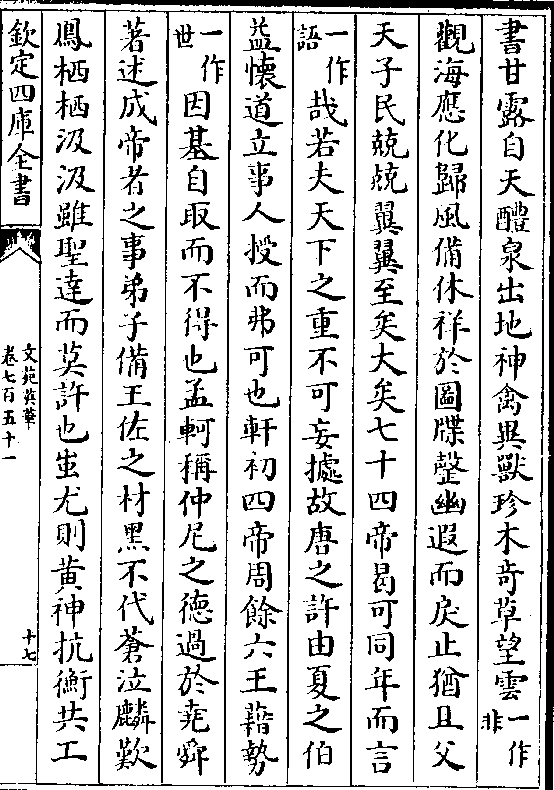 書甘露自天醴泉出地神禽異獸珍木奇草望雲一作非
觀海應化歸風備休祥於圖牒罄幽遐而戾止猶且父
天子民兢兢翼翼至矣大矣七十四帝曷可同年而言
一作語哉若夫天下之重不可妄據故唐之許由夏之伯
益懷道立事人授而弗可也軒初四帝周餘六王藉勢
一作世因基自取而不得也孟軻稱仲尼之德過於堯舜
著述成帝者之事弟子備王佐之材黑不代蒼泣麟歎
鳳栖栖汲汲雖聖達而莫許也蚩尤則黄神抗衡共工
欽定四庫全書
文苑英華
卷七百五十一
十七